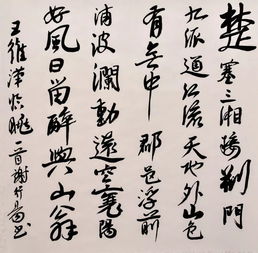 楚塞三湘接荆門
九派通江流天地外山色
有無中郡邑浮前
浦波瀾動遠空襄陽
好風日留醉與山翁
王維漢江臨眺一首謝竹書